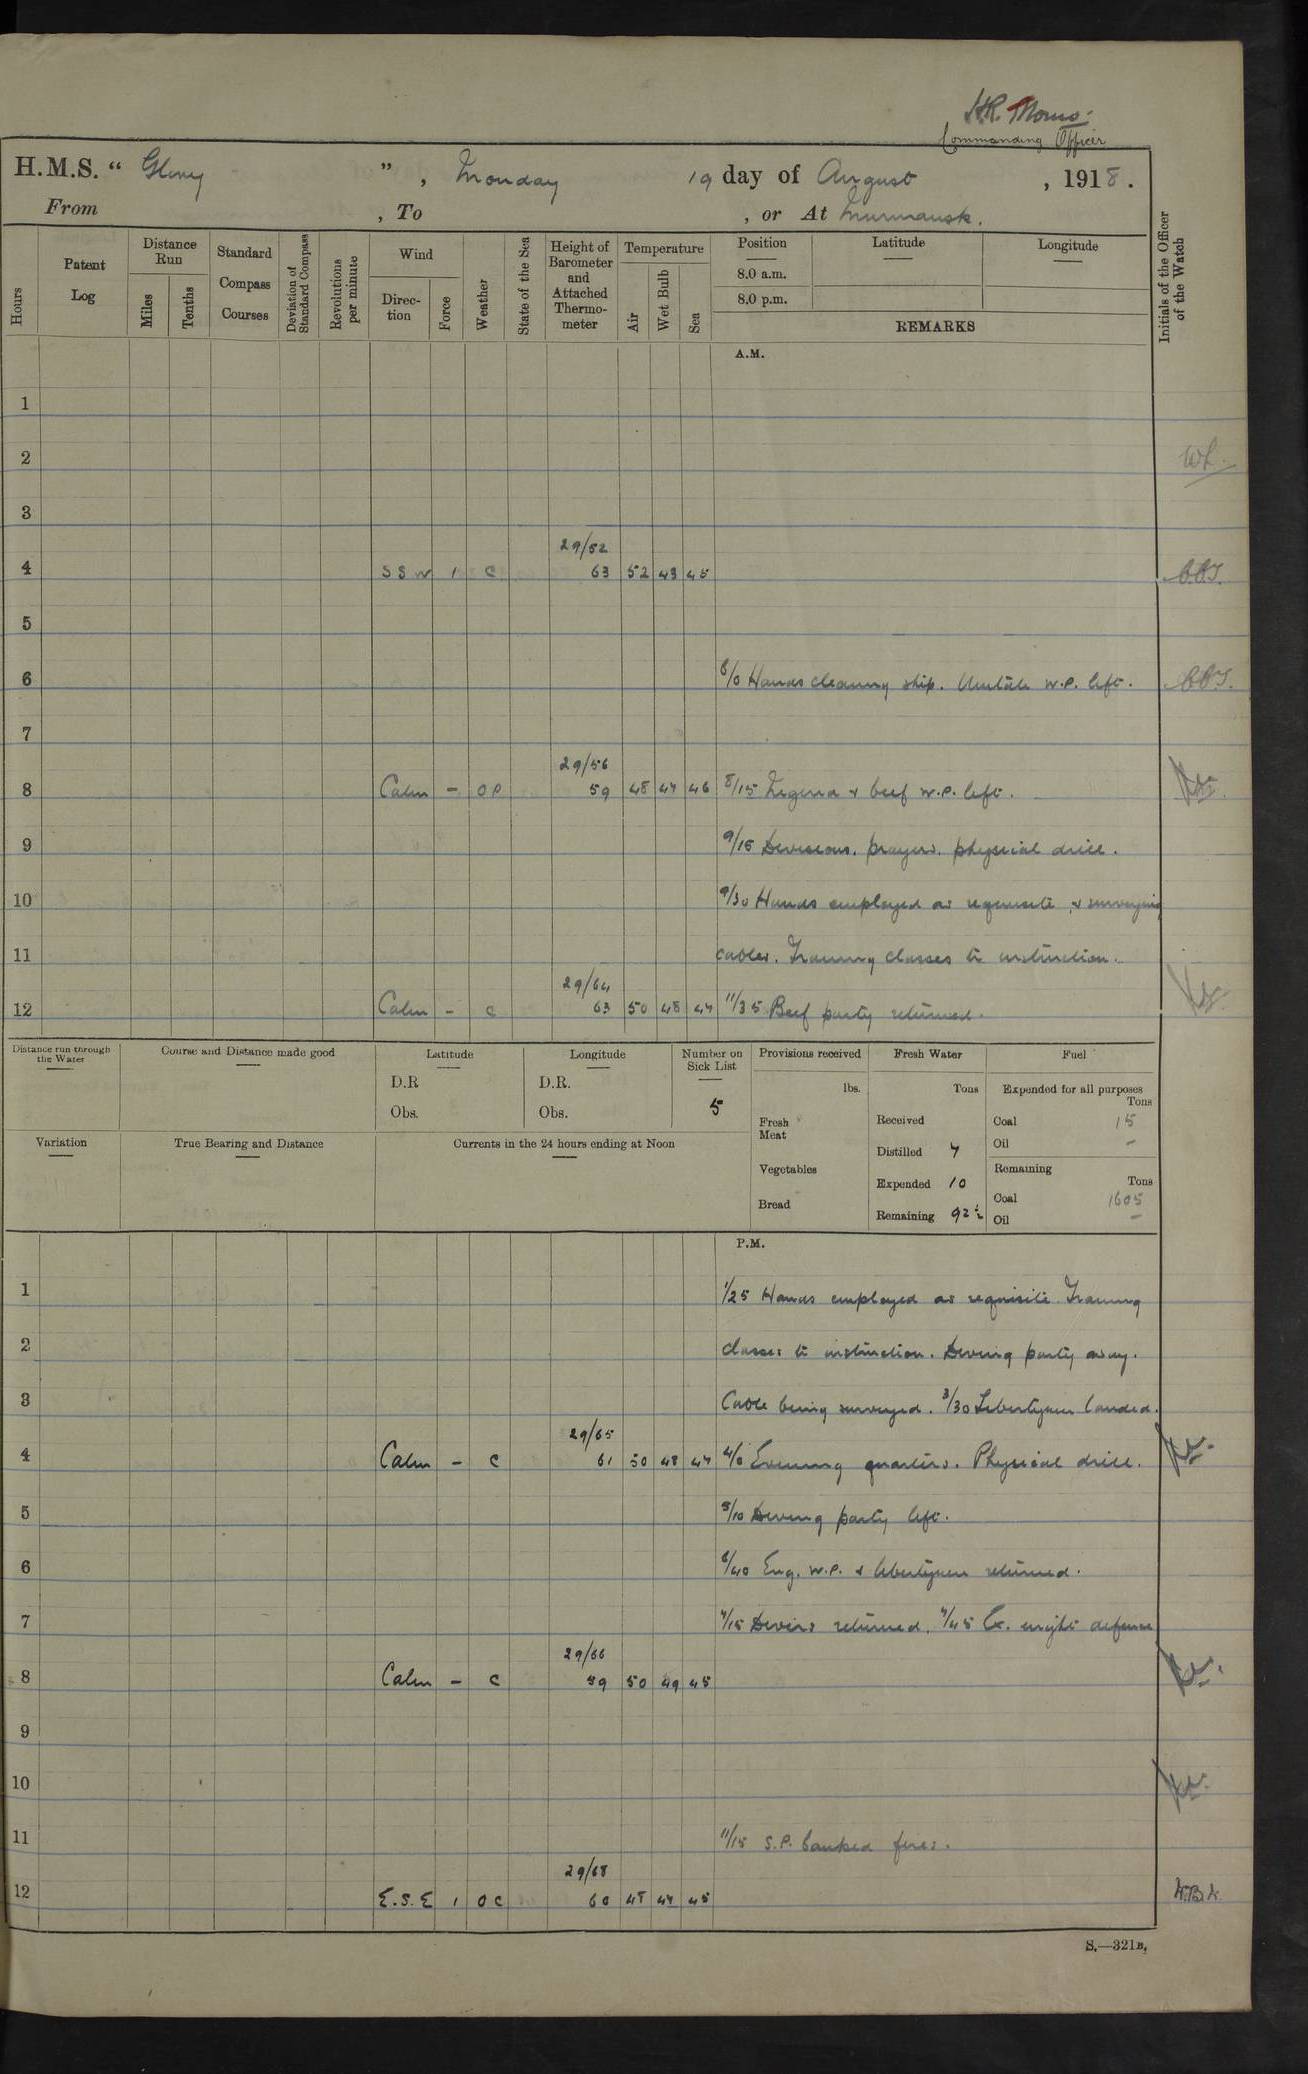 H.R. Morris
Commanding Officer
H.M.S. “ Glory ” , Monday 19 day of August , 1918 .
From , To , or At Murmansk.
Hours
Patent Log
Distance Run
Miles
Tenths
Standard Compass Courses
Deviation of Standard Compass
Revolutions per minute
Wind
Direc- tion
Force
Weather
State of the Sea
Height of Barometer and Attached Thermo- meter
Temperature
Air
Wet Bulb
Sea
Position
Latitude
Longitude
8.0 a.m.
8.0 p.m.
REMARKS
Initials of the Officer of the Watch
A.M.
1
2
3
29/52
4 SSW 1 C 63 52 48 45
5
6 6/0 Hands cleaning ship. W.P. left.
7
29/56
8 Calm - OP 59 48 47 46 8/15 & beef W.P. left.
9 9/15 Divisions, prayers, physical drill.
10 9/30 Hands employed as requisite, & surveying
11 cables. Training classes to instruction.
29/64
12 Calm - C 63 50 48 47 11/35 Beef party returned.
Distance run through the Water
Course and Distance made good
Latitude
D.R
Obs.
Longitude
D.R.
Obs.
Number on Sick List
5
Provisions received
lbs.
Fresh Meat
Vegetables
Bread
Fresh Water
Tons
Received
Distilled 7
Expended 10
Remaining 92½
Fuel
Expended for all purposes
Tons
Coal 15
Oil -
Remaining
Tons
Coal 1605
Oil -
Variation
True Bearing and Distance
Currents in the 24 hours ending at Noon
P.M.
1 1/25 Hands employed as requisite. Training
2 classes to instruction. Diving party away.
3 Cable being surveyed. 3/30 Libertymen landed.
29/65
4 Calm - C 61 50 48 47 4/0 Evening quarters. Physical drill.
5 5/10 Diving party left.
6 6/40 Eng. W.P. & libertymen returned.
7 7/15 Divers returned. 7/45 Ex. night defence
29/66
8 Calm - C 59 50 49 45
9
10
11 11/15 S.P. banked fires.
29/68
12 E.S.E 1 OC 60 48 47 45
S.—321B.